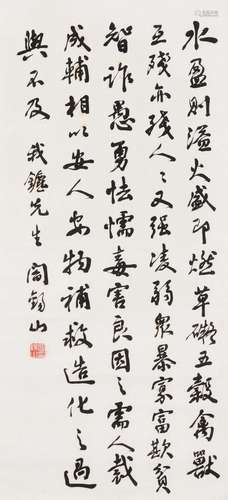 水盈則溢火盛即燃草礙五穀禽獸
互殘亦殘人〻又强凌弱眾暴寡富欺貧
智詐愚勇怯懦毒害良因之需人裁
成輔相以安人安物補救造化之過
與不及 先生 閻錫山